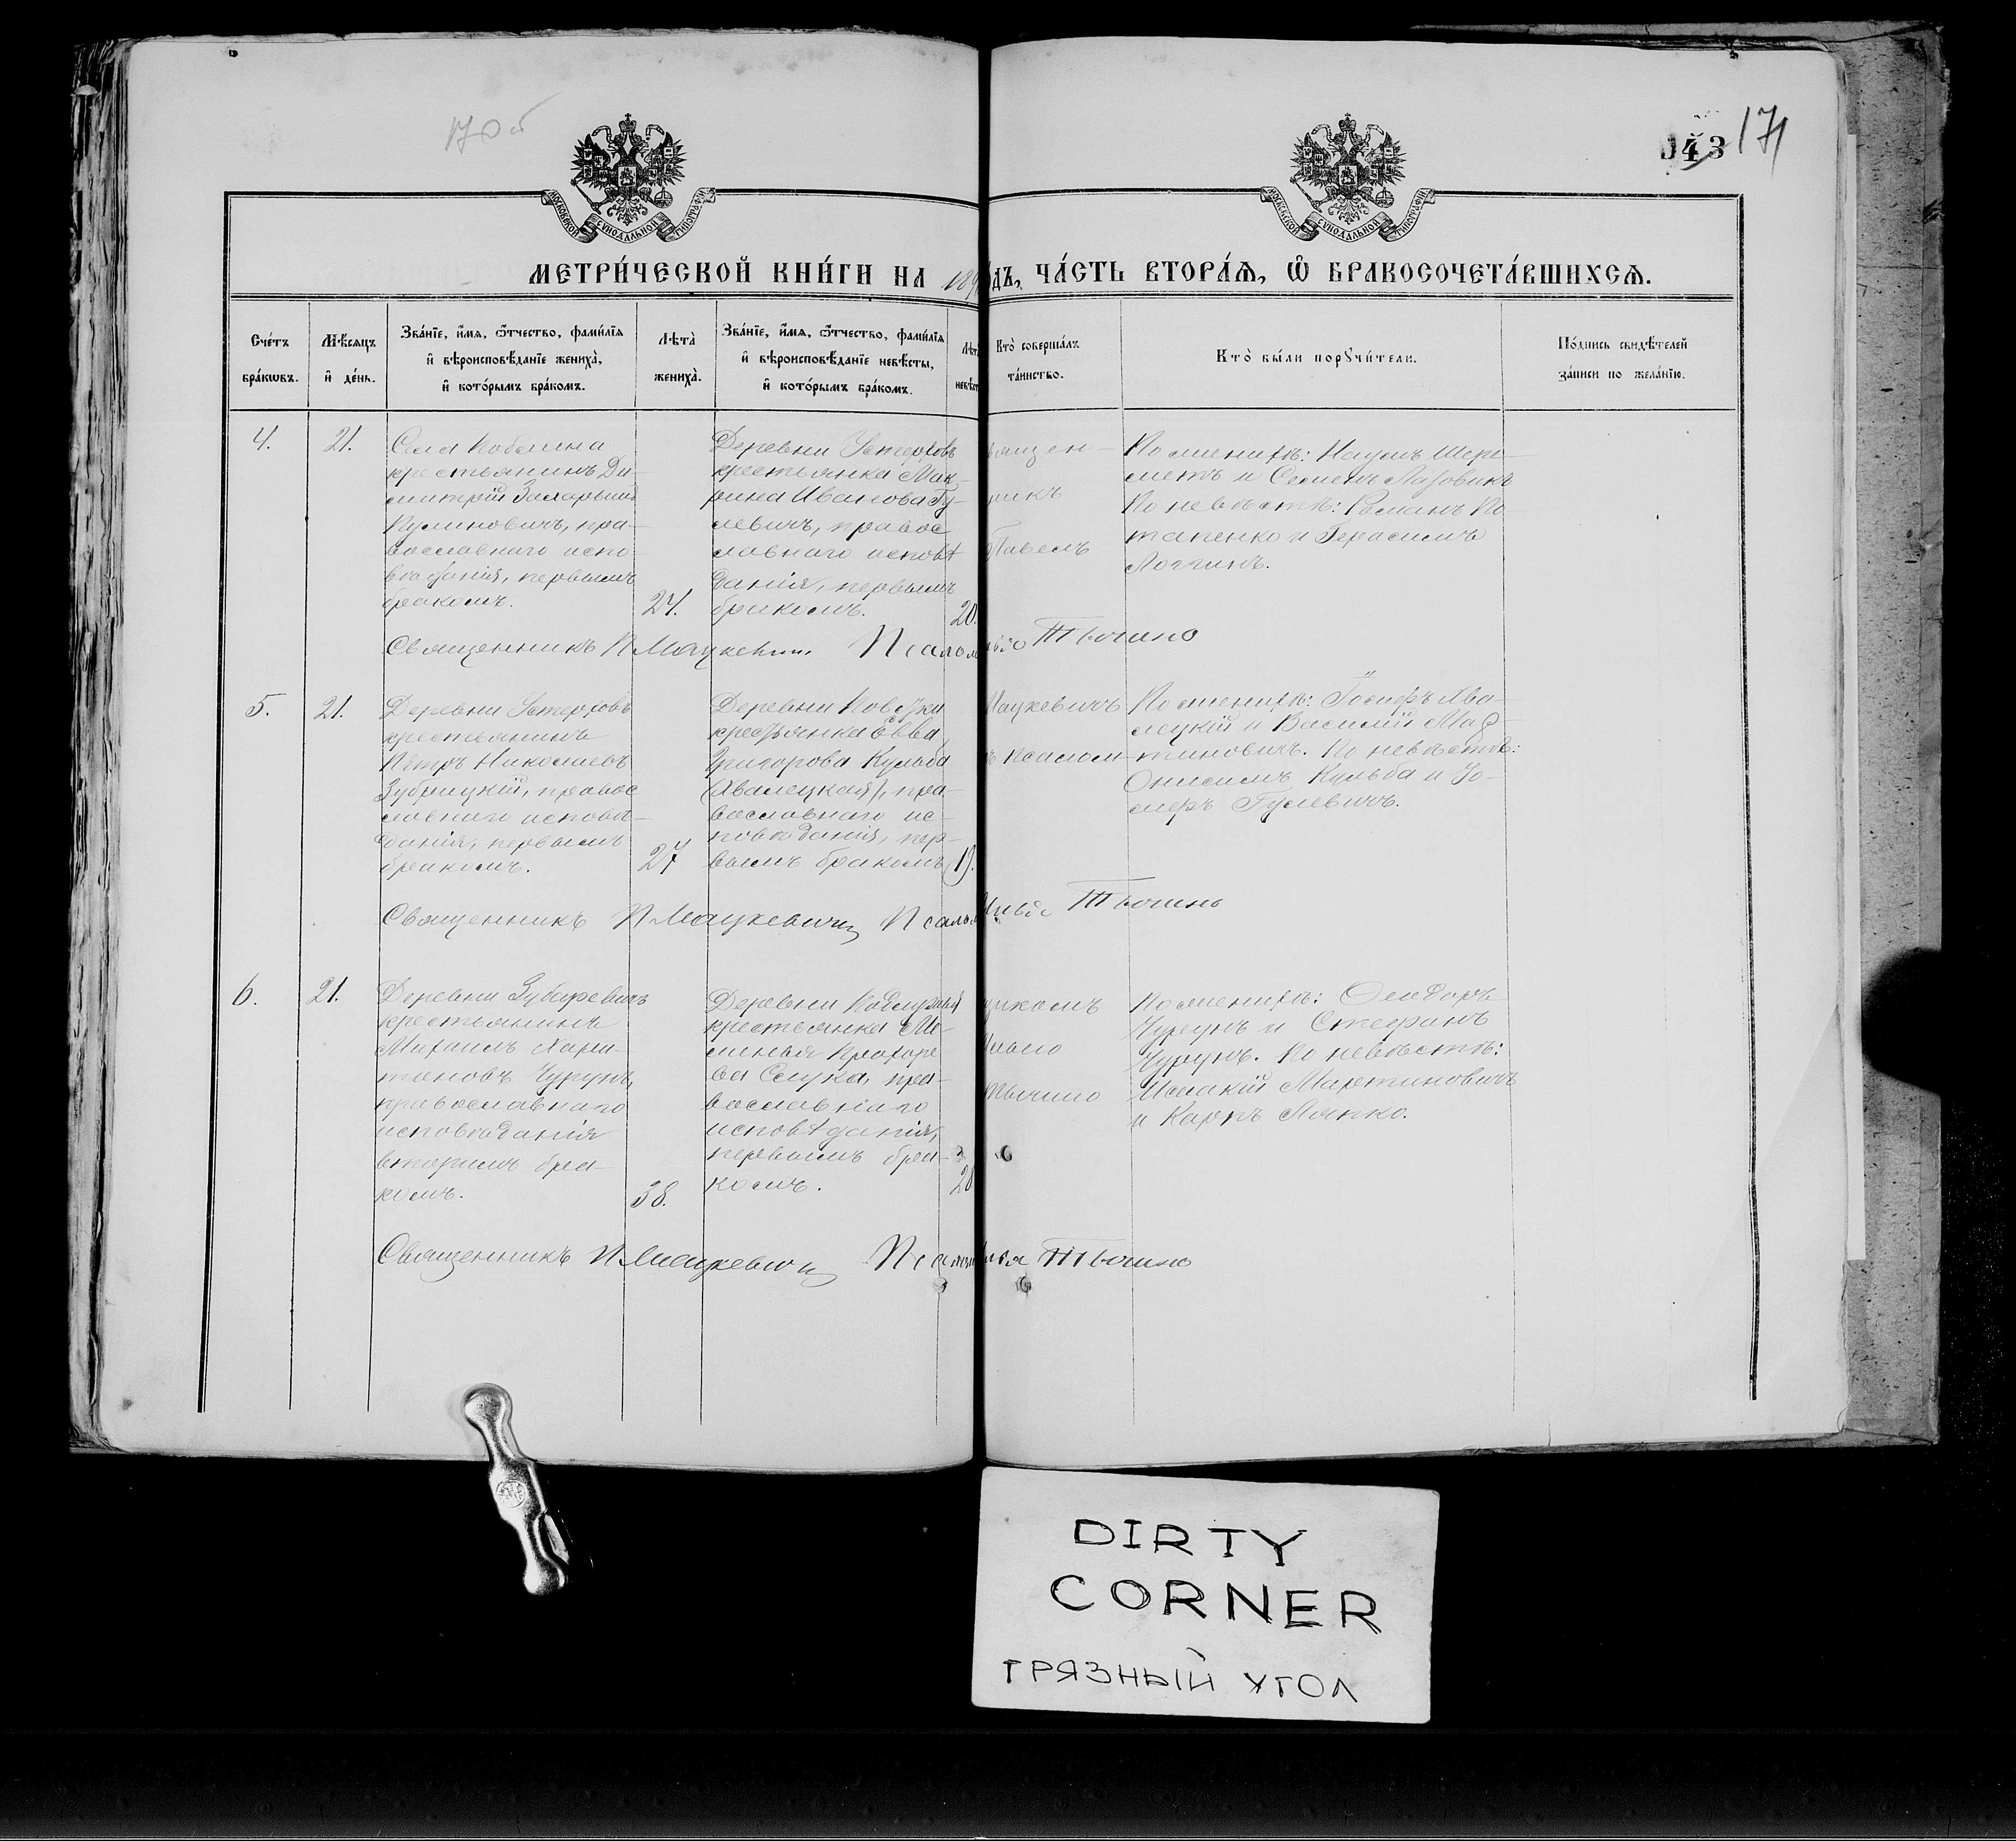 170 об
143 171
МОСКОВСКОЙ СѴНОДАЛЬНОЙ ТИПОГРАФІИ
МОСКОВСКОЙ СѴНОДАЛЬНОЙ ТИПОГРАФІИ
МЕТРИ́ЧЕСКОЙ КНИ́ГИ НА 189 ДЪ, ЧА́СТЬ ВТОРА́Ѧ, Ѽ БРАКОСОЧЕТА́ВШИХСѦ.
Сче́тъ
бра́кѡвъ.
Мѣ́сѧцъ
и҆ де́нь.
Зва́нїе, и҆́мѧ, ѻ҆́тчество, фами́лїѧ
и҆ вѣроисповѣ́данїе жениха̀,
и҆ кото́рымъ бра́комъ.
Лѣта̀
жениха̀.
Зва́нїе, и҆́мѧ, ѻ҆́тчество, фами́лїѧ
и҆ вѣроисповѣ́данїе невѣ́сты,
и҆ кото́рымъ бра́комъ.
Лѣт
невѣст
Кто̀ соверша́лъ
та́инство.
Кто̀ бы́ли порꙋчи́тели.
По́дпись свидѣ́телей
за́писи по жела́нїю.
4.
21.
крестьянинъ Ди-
митрій Захарьинъ
Кулиновичъ, пра-
вославнаго испо-
вѣданія, первымъ
бракомъ.
24.
Деревни
крестьянка Мак-
рина Иванова Гу-
левичъ, правос
лавнаго исповѣ
данія, первымъ
бракомъ.
20.
ящен-
никъ
Павелъ
По женихѣ: Наумъ Шере-
метъ и Семенъ Лазовикъ
По невѣстѣ: Романъ По-
тапенко и Герасимъ
Логгинъ.
Священникъ П Мацкевичъ Псалом Тычино
5.
21.
Деревни
крестьянинъ
Петръ Николаевъ
Зубрицкій, правос
лавнаго исповѣ-
данія, первымъ
бракомъ.
27
Деревни
крестьянка Евва
Григорова Кульба
(Хвалецкая), пра-
вославнаго ис-
повѣданія, пер-
вымъ бракомъ
19.
Мацкевичъ
ъ псалом-
По женихѣ: Іосифъ Хва-
лецкій и Василій Мар-
тиновичъ. По невѣстѣ:
Онисимъ Кульба и Іо-
сифъ Гулевичъ.
Священникъ П Мацкевичъ Псалом Илья Тычино
6.
21.
Деревни Зубаревичъ
крестьянинъ
Михаилъ Хари-
тоновъ Чурунъ,
православнаго
исповѣданія
вторымъ бра-
комъ.
38.
Деревни
крестьянка Ме-
ланья Прохоро
ва Слука, пра-
вославнаго
исповѣданія,
первымъ бра-
комъ.
28
щикомъ
Ильею
Тычино
По женихѣ: Ѳеодоръ
Чурунъ и Стефанъ
Чурунъ. По невѣстѣ:
Исаакій Мартиновичъ
и Карпъ Ляпко.
Священникъ П Мацкевичъ Псалом Илья Тычино
DIRTY
CORNER
ГРЯЗНЫЙ УГОЛ